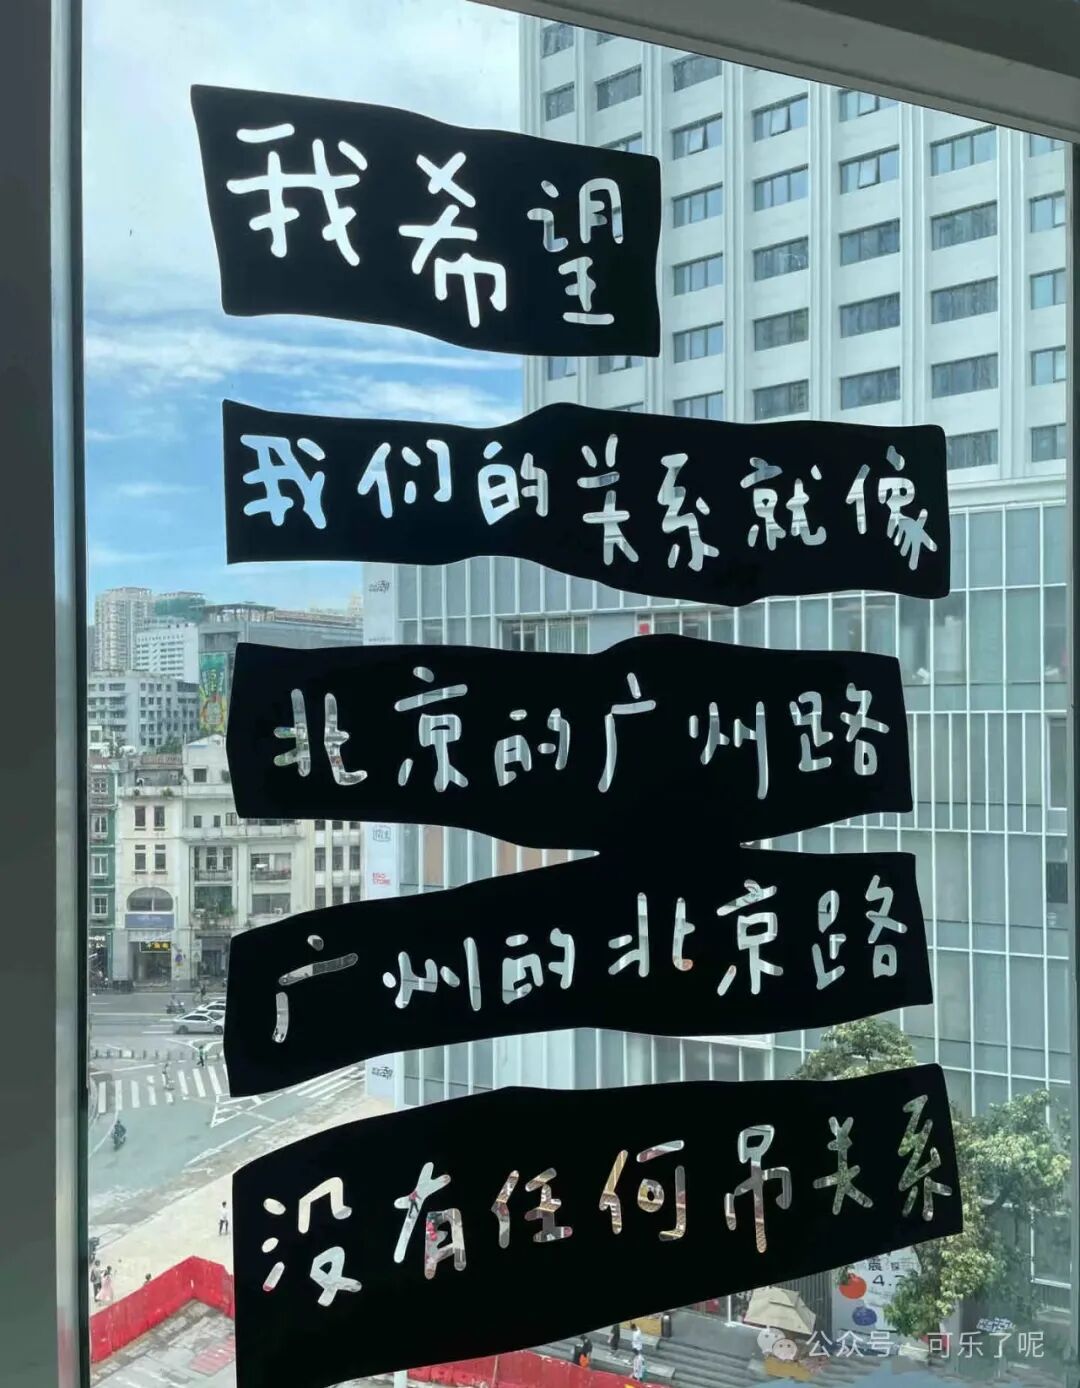 我希望
我们的关系就像
北京的广州路
广州的北京路
没有任何吊关系
公众号：可乐了呢